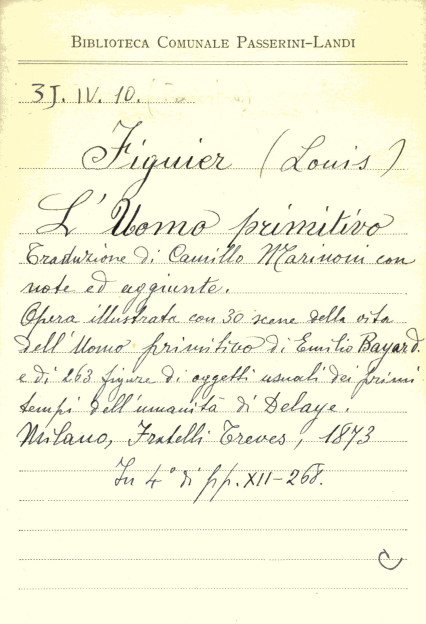 BIBLIOTECA COMUNALE PASSERINI-LANDI
3J. IV. 10.
Figuier (Louis)
L'Uomo primitivo
Traduzione di Camillo Marinoni con
note ed aggiunte.
Opera illustrata con 30 scene della vita
dell'Uomo primitivo di Emilio Bayard.
e di 263 figure di oggetti usuali dei primi
tempi dell'umanità di Delaye.
Milano, Fratelli Treves, 1873
In 4° di pp. XII-268.
C